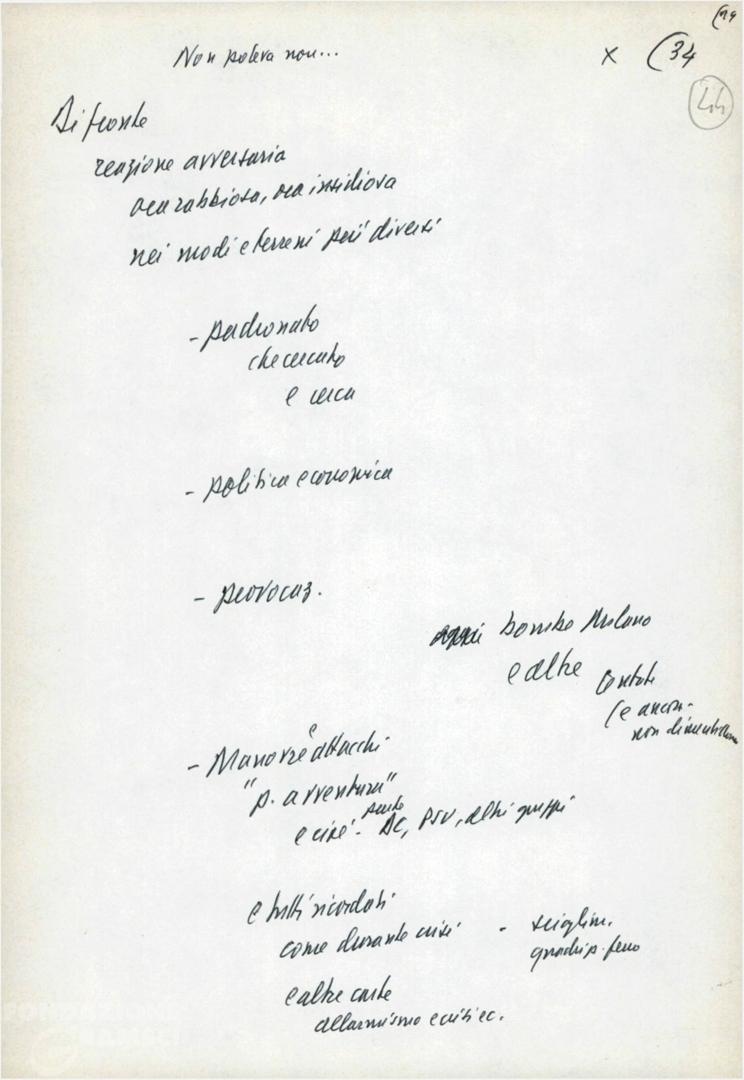 (29
Non poteva non...
x (34
44
Di fronte
reazione avversaria
ora rabbiosa, ora insidiosa
nei modi e terreni più diversi
- padronato
che cercato
e cerca
- politica economica
- provocaz.
bombe Milano
e altre
(e ancor.
non dimentichiamo
- Manovre e attacchi
"p. avventura"
e cioè - parte DC, PSU, altri gruppi
e tutti ricordati
come durante crisi - scioglim.
quadrip. ferro
e altre carte
allarmismo e crisi ec.
FONDAZIONE